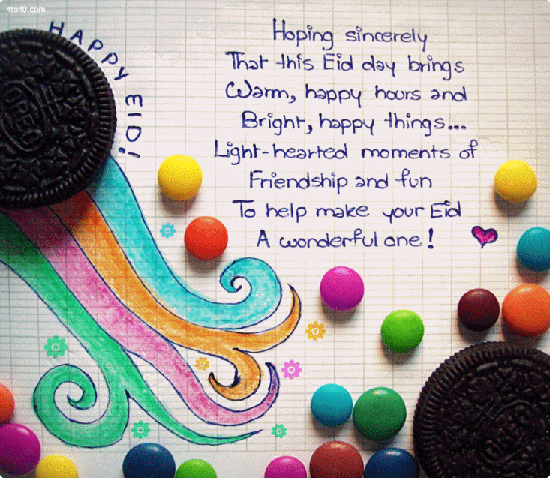 1to10.com
HAPPY EID!
Hoping sincerely
That this Eid day brings
Warm, happy hours and
Bright, happy things...
Light-hearted moments of
Friendship and fun
To help make your Eid
A wonderful one!
OREO